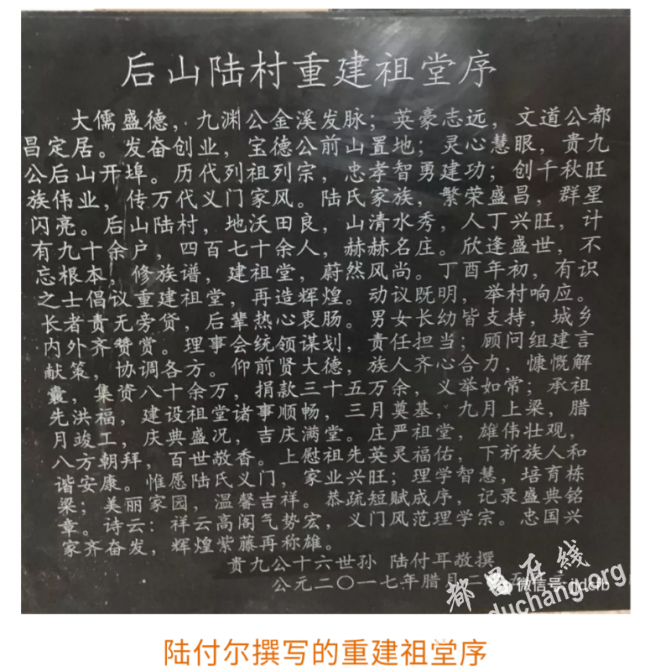 后山陆村重建祖堂序
大儒盛德，九渊公金溪发脉；英豪志远，文道公都
昌定居。发奋创业，宝德公前山置地；灵心慧眼，贵九
公后山开埠。历代列祖列宗，忠孝智勇建功；创千秋旺
族伟业，传万代义门家风。陆氏家族，繁荣盛昌，群星
闪亮。后山陆村，地沃田良，山清水秀，人丁兴旺，计
有九十余户，四百七十余人，赫赫名庄。欣逢盛世，不
忘根本，修族谱，建祖堂，蔚然风尚。丁酉年初，有识
之士倡议重建祖堂，再造辉煌。动议既明，举村响应。
长者责无旁贷，后辈热心衷肠。男女长幼皆支持，城乡
内外齐赞赏。理事会统领谋划，责任担当；顾问组建言
献策，协调各方。仰前贤大德，族人齐心合力，慷慨解
囊，集资八十余万，捐款三十五万余，义举如常；承祖
先洪福，建设祖堂诸事顺畅，三月奠基，九月上梁，腊
月竣工，庆典盛况，吉庆满堂。庄严祖堂，雄伟壮观，
八方朝拜，百世敬香。上慰祖先英灵福佑，下祈族人和
谐安康。惟愿陆氏义门，家业兴旺；理学智慧，培育栋
梁；美丽家园，温馨吉祥。恭疏短赋成序，记录盛典铭
章。诗云：祥云高阁气势宏，义门风范理学宗。忠国兴
家齐奋发，辉煌紫藤再称雄。
贵九公十六世孙 陆付耳敬撰
公元二〇一七年腊月二
都昌在线
微信号
duchang.org
陆付尔撰写的重建祖堂序